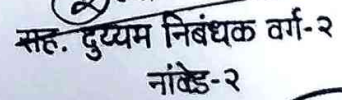 सह. दुय्यम निबंधक वर्ग-२
नांदेड-२